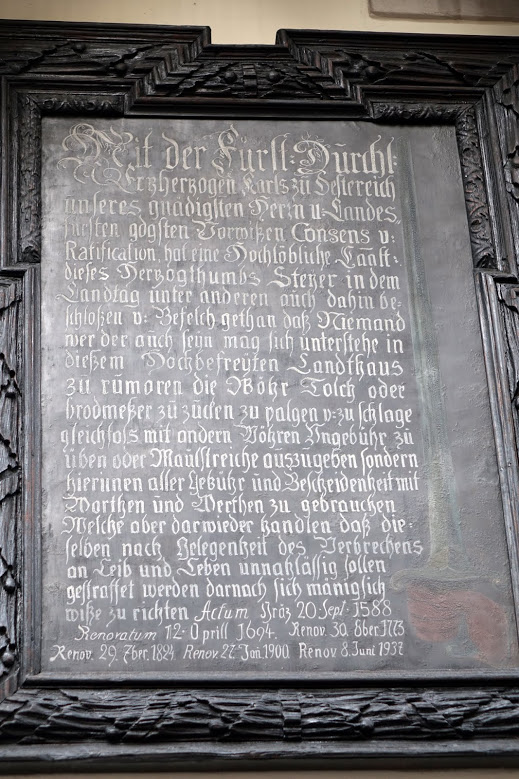 Mit der Fürst: Durchl:
Ertzherzogen Karls zu Oesterreich
unseres gnädigsten Herrn u: Landes,
fürsten gdgsten Vorwißen Consens v:
Ratification, hat eine Hochlöbliche Lantt:
dieses Herzogthumbs Steyer in dem
Landtag unter anderen auch dahin be=
schloßen v: Befelch gethan daß Niemand
wer der auch seyn mag sich unterstehe in
dießem Hochbefreyten Landthaus
zu rumoren die Wöhr Tolch oder
brodmeßer zu zucken zu palgen v: zu schlage
gleichfals mit andern Wöhren Ungebühr zu
üben oder Maulstreiche auszugeben sondern
hierinen aller Gebühr und Bescheidenheit mit
Worthen und Werthen zu gebrauchen
Welche aber darwieder handlen daß die=
selben nach Gelegenheit des Verbrechens
an Leib und Leben unnachlässig sollen
gestraffet werden darnach sich mäniglich
wiße zu richten Actum Gräz 20 Sept: 1588
Renovatum 12. Aprill 1694. Renov. 30. 8ber. 1773
Renov. 29. 7ber. 1824. Renov. 27. Jañ. 1900. Renov 8. Juni 1937